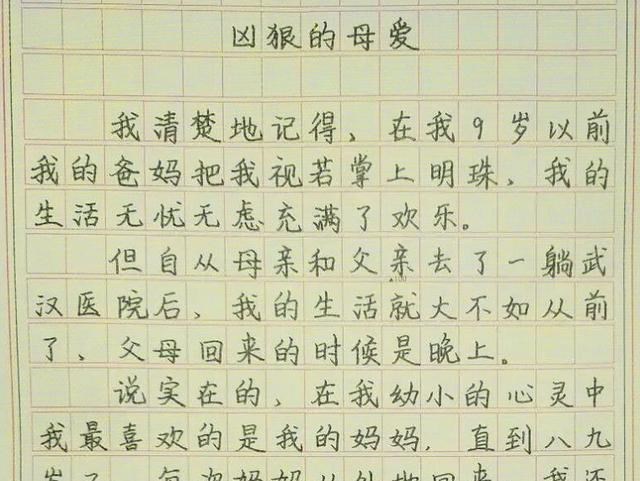 凶狠的母爱
我清楚地记得，在我9岁以前
我的爸妈把我视若掌上明珠，我的
生活无忧无虑充满了欢乐。
但自从母亲和父亲去了一躺武
汉医院后，我的生活就大不如从前
了，父母回来的时候是晚上。
说实在的，在我幼小的心灵中
我最喜欢的是我的妈妈，直到八九
岁了，每次妈妈从外地回来，我还